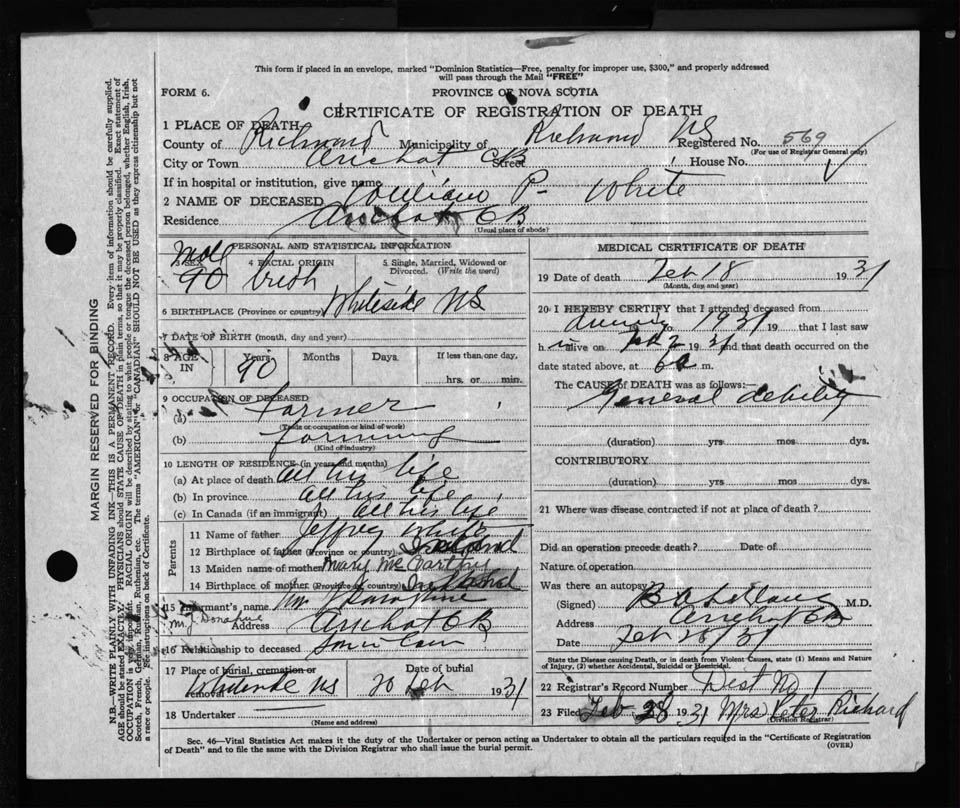 This form if placed in an envelope, marked "Dominion Statistics—Free, penalty for improper use, $300," and properly addressed
will pass through the Mail "FREE"
FORM 6.
PROVINCE OF NOVA SCOTIA
CERTIFICATE OF REGISTRATION OF DEATH
1 PLACE OF DEATH
County of Richmond Municipality of Richmond NS Registered No. 569
(For use of Registrar General only)
City or Town Arichat CB Street House No.
If in hospital or institution, give name
2 NAME OF DECEASED William P- White
Residence Arichat CB
(Usual place of abode)
PERSONAL AND STATISTICAL INFORMATION
male
SEX
90
4 RACIAL ORIGIN
Irish
5 Single, Married, Widowed or
Divorced. (Write the word)
6 BIRTHPLACE (Province or country) Whiteside NS
7 DATE OF BIRTH (month, day and year)
8 AGE
IN
Years
90
Months
Days.
If less than one day,
hrs. or min.
9 OCCUPATION OF DECEASED
(a) farmer
(Trade or occupation or kind of work)
(b) farming
(Kind of industry)
10 LENGTH OF RESIDENCE (in years and months)
(a) At place of death all his life
(b) In province all his life
(c) In Canada (if an immigrant) all his life
Parents
11 Name of father Jeffrey White
12 Birthplace of father (Province or country) Ireland
13 Maiden name of mother Mary McCarthy
14 Birthplace of mother (Province or country) Ireland
15 Informant's name
M.J. Donahue
Address Arichat CB
16 Relationship to deceased
17 Place of burial, cremation or
removal
Whiteside NS
Date of burial
20 Feb 1931
18 Undertaker
(Name and address)
MEDICAL CERTIFICATE OF DEATH
19 Date of death Feb 18 1931
(Month, day and year)
20 I HEREBY CERTIFY that I attended deceased from
during to 1931 19 that I last saw
h im alive on 1931 and that death occurred on the
date stated above, at 6 a m.
The CAUSE of DEATH was as follows:—
General debility
(duration) yrs mos dys.
CONTRIBUTORY
(duration) yrs. mos dys.
21 Where was disease contracted if not at place of death?
Did an operation precede death? Date of
Nature of operation
Was there an autopsy
(Signed) M.D.
Address Arichat CB
Date Feb 28/31
State the Disease causing Death, or in death from Violent Causes, state (1) Means and Nature
of Injury, (2) whether Accidental, Suicidal or Homicidal.
22 Registrar's Record Number Dist No 1
23 Filed Feb 28 1931 Mrs Peter Richard
(Division Registrar)
Sec. 46—Vital Statistics Act makes it the duty of the Undertaker or person acting as Undertaker to obtain all the particulars required in the "Certificate of Registration
of Death" and to file the same with the Division Registrar who shall issue the burial permit.
(OVER)
MARGIN RESERVED FOR BINDING
N.B.—WRITE PLAINLY WITH UNFADING INK—THIS IS A PERMANENT RECORD. Every item of information should be carefully supplied.
AGE should be stated EXACTLY. PHYSICIANS should STATE CAUSE OF DEATH in plain terms, so that it may be properly classified. Exact statement of
OCCUPATION is very important. RACIAL ORIGIN will be described by stating to what people or tongue the deceased person belonged, whether English, Irish,
Scotch, French, German, Russian, Ruthenian, etc. The terms "AMERICAN" or "CANADIAN" SHOULD NOT BE USED as they express citizenship but not
a race or people. See instructions on back of Certificate.